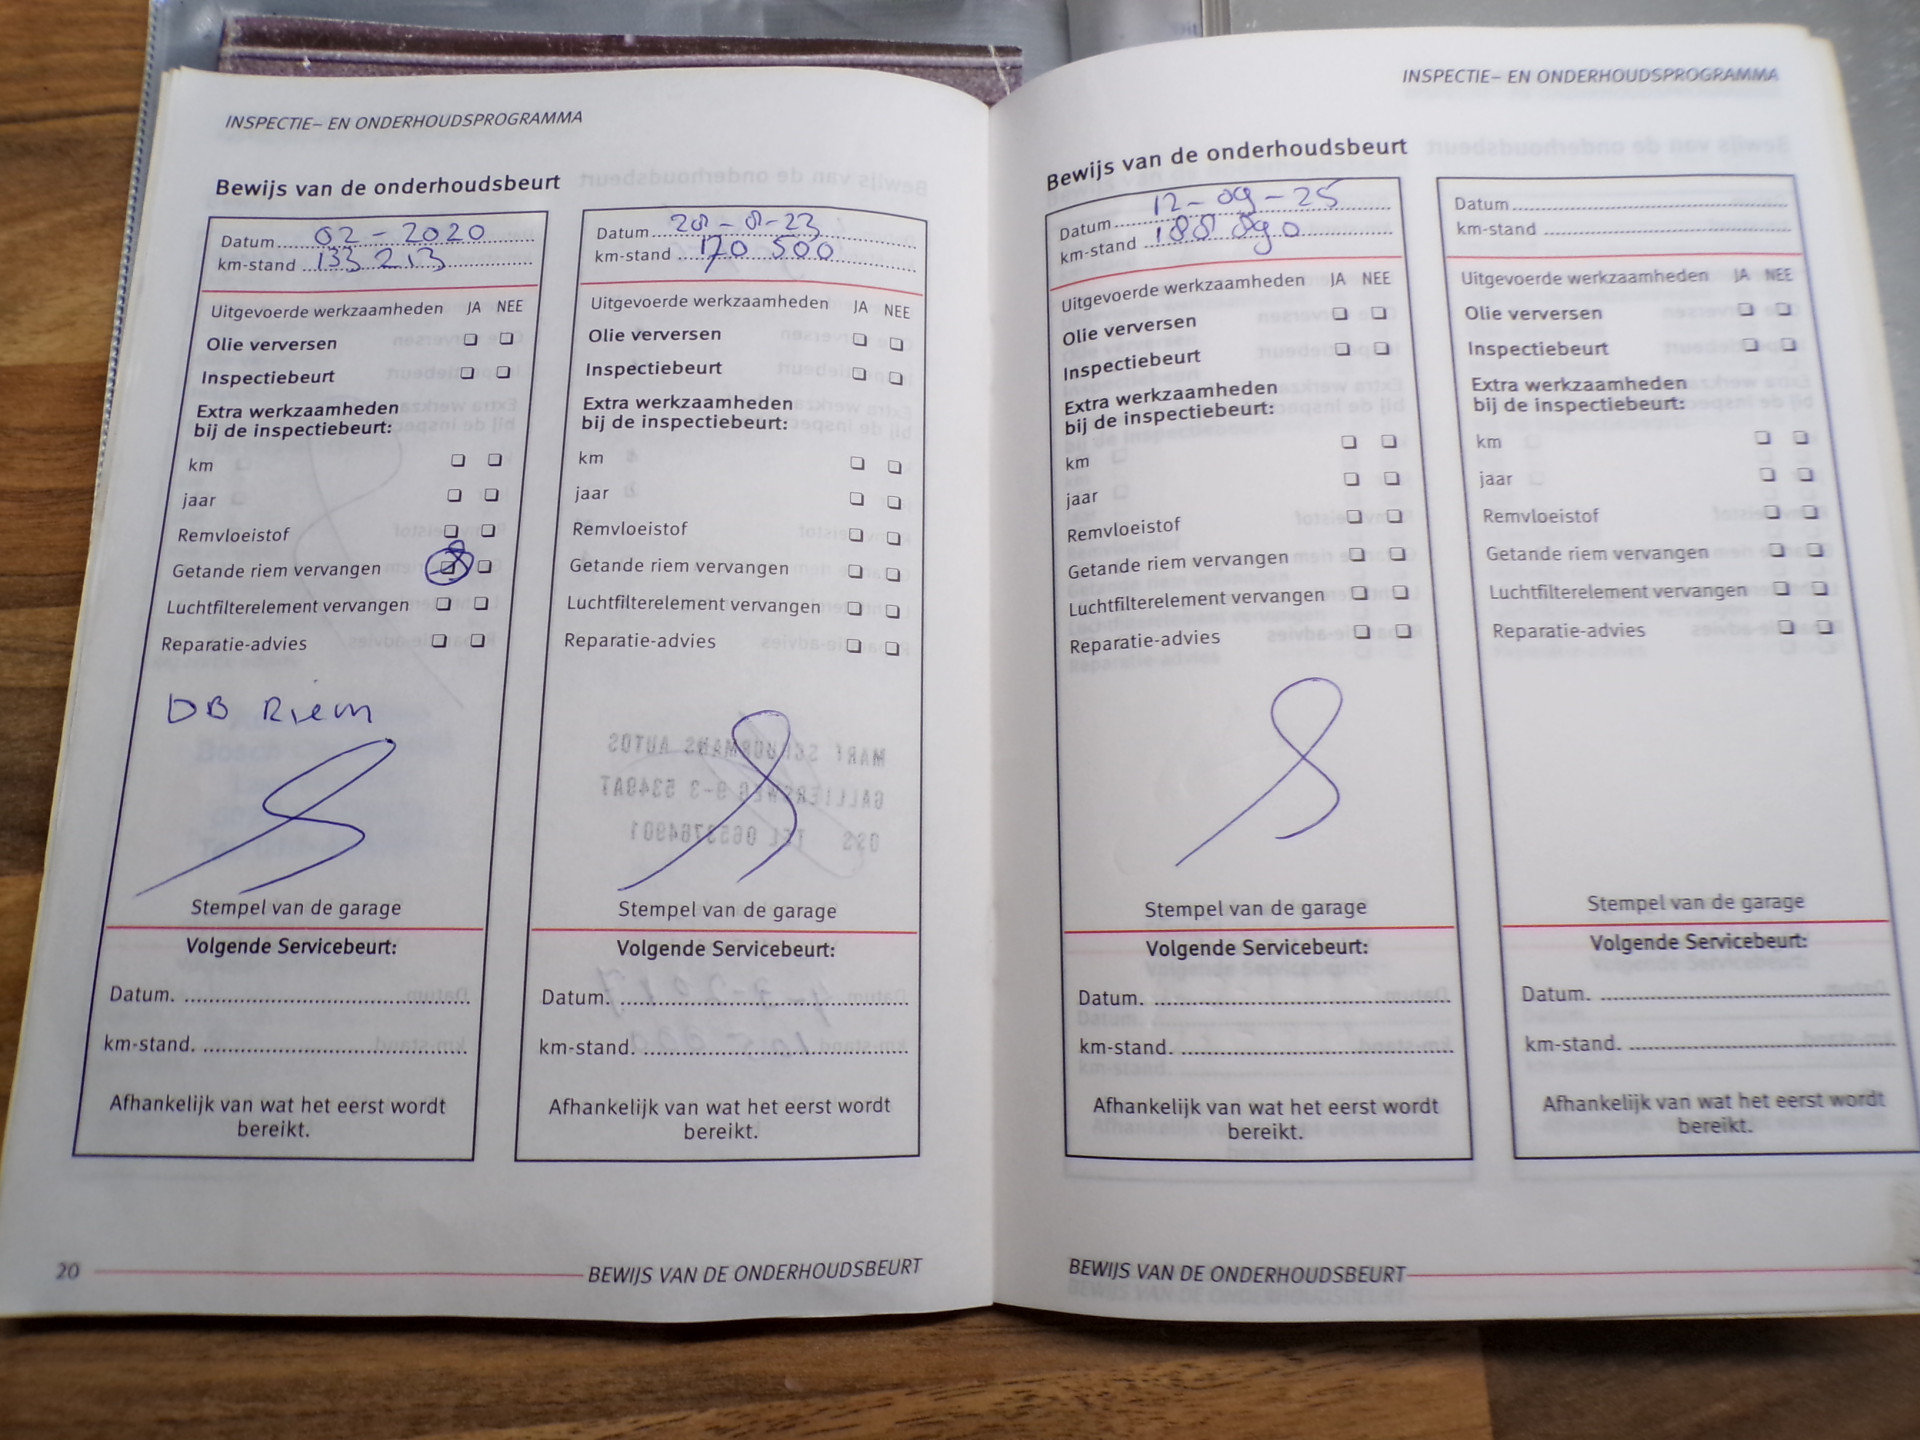 INSPECTIE- EN ONDERHOUDSPROGRAMMA
Bewijs van de onderhoudsbeurt
Datum 02 - 2020
km-stand 133 213
Uitgevoerde werkzaamheden JA NEE
Olie verversen
Inspectiebeurt
Extra werkzaamheden
bij de inspectiebeurt:
km
jaar
Remvloeistof
Getande riem vervangen
Luchtfilterelement vervangen
Reparatie-advies
DB Riem
Stempel van de garage
Volgende Servicebeurt:
Datum.
km-stand.
Afhankelijk van wat het eerst wordt
bereikt.
Datum 28-8-23
km-stand 170 500
Uitgevoerde werkzaamheden JA NEE
Olie verversen
Inspectiebeurt
Extra werkzaamheden
bij de inspectiebeurt:
km
jaar
Remvloeistof
Getande riem vervangen
Luchtfilterelement vervangen
Reparatie-advies
Stempel van de garage
Volgende Servicebeurt:
Datum.
km-stand.
Afhankelijk van wat het eerst wordt
bereikt.
20
BEWIJS VAN DE ONDERHOUDSBEURT
INSPECTIE- EN ONDERHOUDSPROGRAMMA
Bewijs van de onderhoudsbeurt
Datum 12-09-25
km-stand 188 890
Uitgevoerde werkzaamheden JA NEE
Olie verversen
Inspectiebeurt
Extra werkzaamheden
bij de inspectiebeurt:
km
jaar
Remvloeistof
Getande riem vervangen
Luchtfilterelement vervangen
Reparatie-advies
Stempel van de garage
Volgende Servicebeurt:
Datum.
km-stand.
Afhankelijk van wat het eerst wordt
bereikt.
Datum
km-stand
Uitgevoerde werkzaamheden JA NEE
Olie verversen
Inspectiebeurt
Extra werkzaamheden
bij de inspectiebeurt:
km
jaar
Remvloeistof
Getande riem vervangen
Luchtfilterelement vervangen
Reparatie-advies
Stempel van de garage
Volgende Servicebeurt:
Datum.
km-stand.
Afhankelijk van wat het eerst wordt
bereikt.
BEWIJS VAN DE ONDERHOUDSBEURT